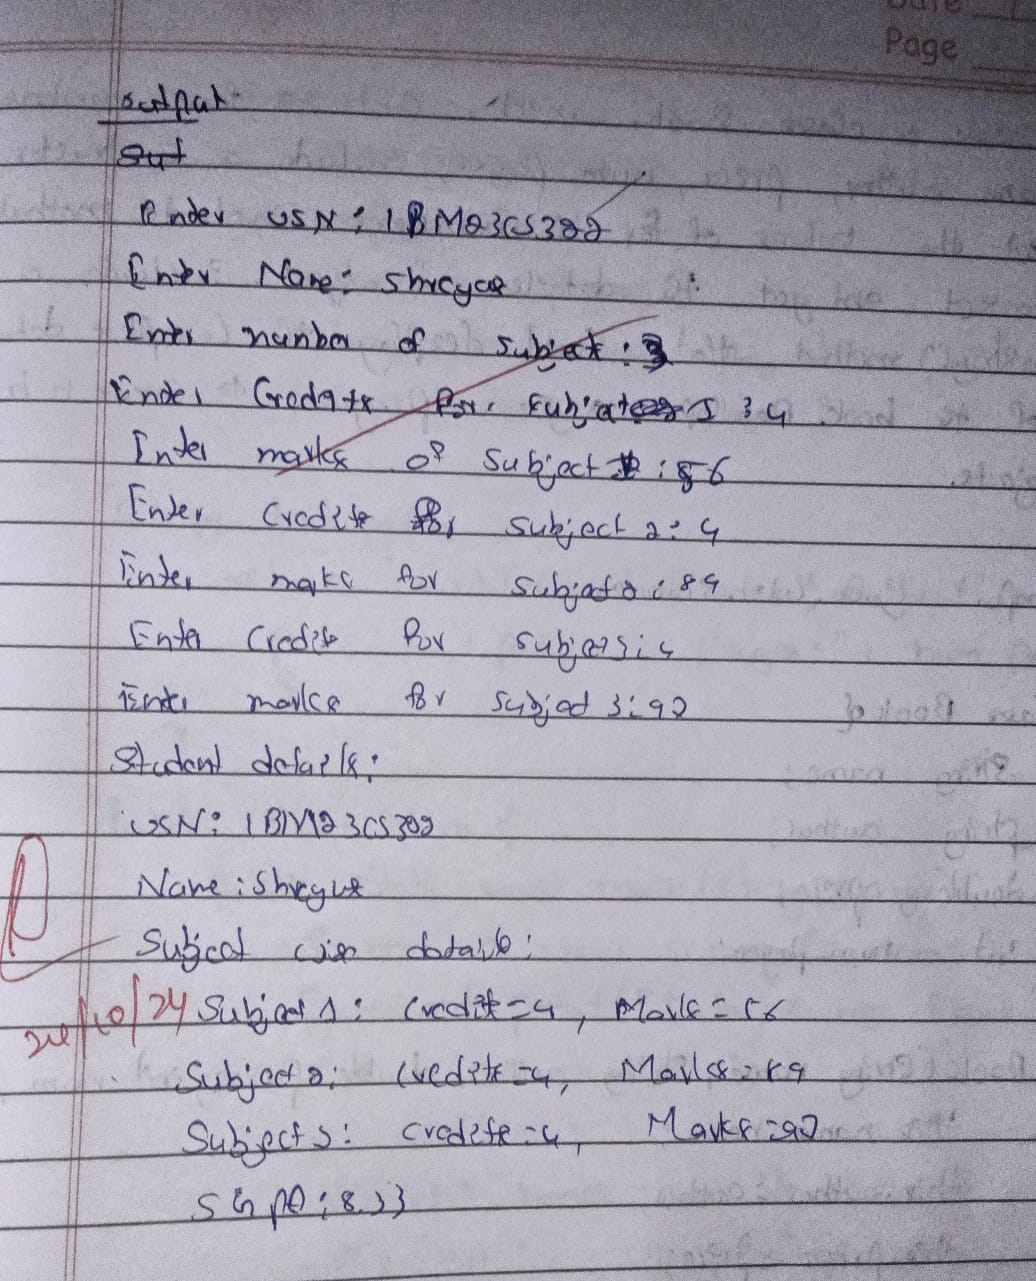 Date
Page
output
out
Enter USN : 1BM23CS322
Enter Name : Shreyas
Enter number of subject : 3
Enter Credits for subject 1 : 4
Enter marks of subject 1 : 56
Enter Credits for subject 2 : 4
Enter marks for subject 2 : 89
Enter Credits for subject 3 : 4
Enter marks for subject 3 : 92
Student details :
USN : 1BM23CS322
Name : Shreyas
Subject wise details :
24/10/24 Subject 1 : Credit = 4 , Marks = 56
Subject 2 : Credits = 4 , Marks = 89
Subject 3 : Credits = 4 , Marks = 92
SGPA : 8.33